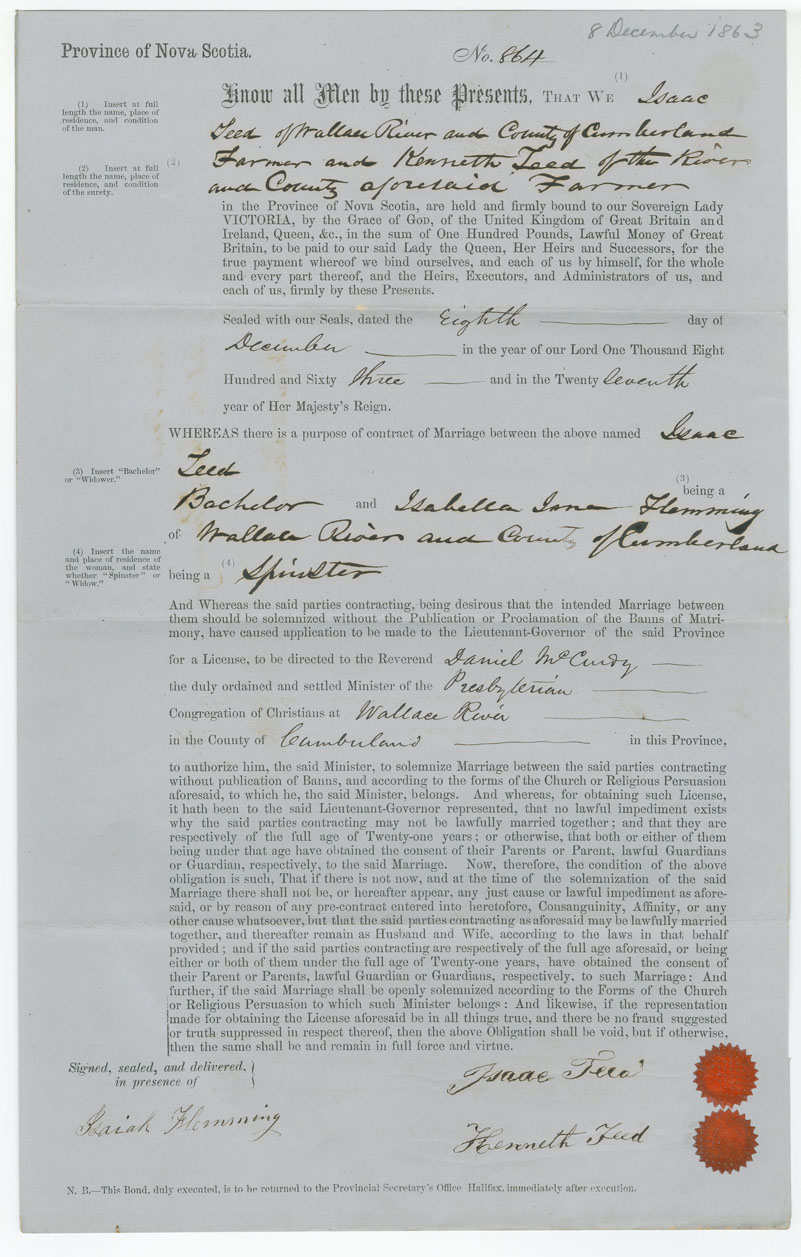 8 December 1863
Province of Nova Scotia.
No. 864
(1)
Know all Men by these Presents, THAT WE Isaac
(1) Insert at full
length the name, place of
residence, and condition
of the man.
Teed of Wallace River and County of Cumberland
(2)
Farmer and Kenneth Teed of the River
(2) Insert at full
length the name, place of
residence, and condition
of the surety.
and County aforesaid Farmer
in the Province of Nova Scotia, are held and firmly bound to our Sovereign Lady
VICTORIA, by the Grace of GOD, of the United Kingdom of Great Britain and
Ireland, Queen, &c., in the sum of One Hundred Pounds, Lawful Money of Great
Britain, to be paid to our said Lady the Queen, Her Heirs and Successors, for the
true payment whereof we bind ourselves, and each of us by himself, for the whole
and every part thereof, and the Heirs, Executors, and Administrators of us, and
each of us, firmly by these Presents.
Sealed with our Seals, dated the Eighth day of
December in the year of our Lord One Thousand Eight
Hundred and Sixty three and in the Twenty Seventh
year of Her Majesty's Reign.
WHEREAS there is a purpose of contract of Marriage between the above named Isaac
Teed
(3) being a
(3) Insert "Bachelor"
or "Widower."
Bachelor and Isabella Jane Flemming
of Wallace River and County of Cumberland
(4) Insert the name
and place of residence of
the woman, and state
whether "Spinster" or
"Widow."
being a (4) Spinster
And Whereas the said parties contracting, being desirous that the intended Marriage between
them should be solemnized without the Publication or Proclamation of the Banns of Matri-
mony, have caused application to be made to the Lieutenant-Governor of the said Province
for a License, to be directed to the Reverend Daniel McCurdy
the duly ordained and settled Minister of the Presbyterian
Congregation of Christians at Wallace River
in the County of Cumberland in this Province,
to authorize him, the said Minister, to solemnize Marriage between the said parties contracting
without publication of Banns, and according to the forms of the Church or Religious Persuasion
aforesaid, to which he, the said Minister, belongs. And whereas, for obtaining such License,
it hath been to the said Lieutenant-Governor represented, that no lawful impediment exists
why the said parties contracting may not be lawfully married together; and that they are
respectively of the full age of Twenty-one years; or otherwise, that both or either of them
being under that age have obtained the consent of their Parents or Parent, lawful Guardians
or Guardian, respectively, to the said Marriage. Now, therefore, the condition of the above
obligation is such, That if there is not now, and at the time of the solemnization of the said
Marriage there shall not be, or hereafter appear, any just cause or lawful impediment as afore-
said, or by reason of any pre-contract entered into heretofore, Consanguinity, Affinity, or any
other cause whatsoever, but that the said parties contracting as aforesaid may be lawfully married
together, and thereafter remain as Husband and Wife, according to the laws in that behalf
provided; and if the said parties contracting are respectively of the full age aforesaid, or being
either or both of them under the full age of Twenty-one years, have obtained the consent of
their Parent or Parents, lawful Guardian or Guardians, respectively, to such Marriage: And
further, if the said Marriage shall be openly solemnized according to the Forms of the Church
or Religious Persuasion to which such Minister belongs: And likewise, if the representation
made for obtaining the License aforesaid be in all things true, and there be no fraud suggested
or truth suppressed in respect thereof, then the above Obligation shall be void, but if otherwise,
then the same shall be and remain in full force and virtue.
Signed, sealed, and delivered,
in presence of
Isaac Teed
Isaiah Flemming
Kenneth Teed
N. B.—This Bond, duly executed, is to be returned to the Provincial Secretary's Office Halifax, immediately after execution.